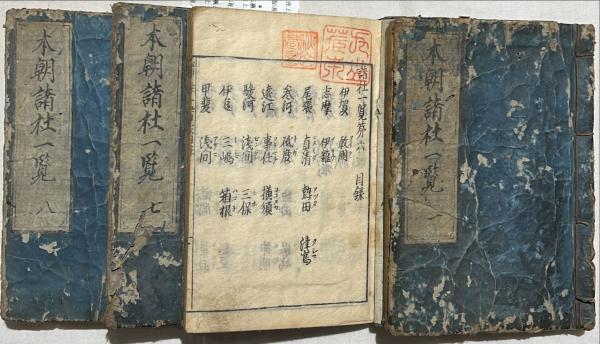 本朝諸社一覧
諸社一覧第六 目録
伊賀 敢國
志摩 伊雜
尾張 真清 熱田 津嶌
参河 砥鹿
遠江 事任 横須
駿河 浅間 三保
伊豆 三嶋 箱根
甲斐 浅間
本朝諸社一覧 七
本朝諸社一覧 八